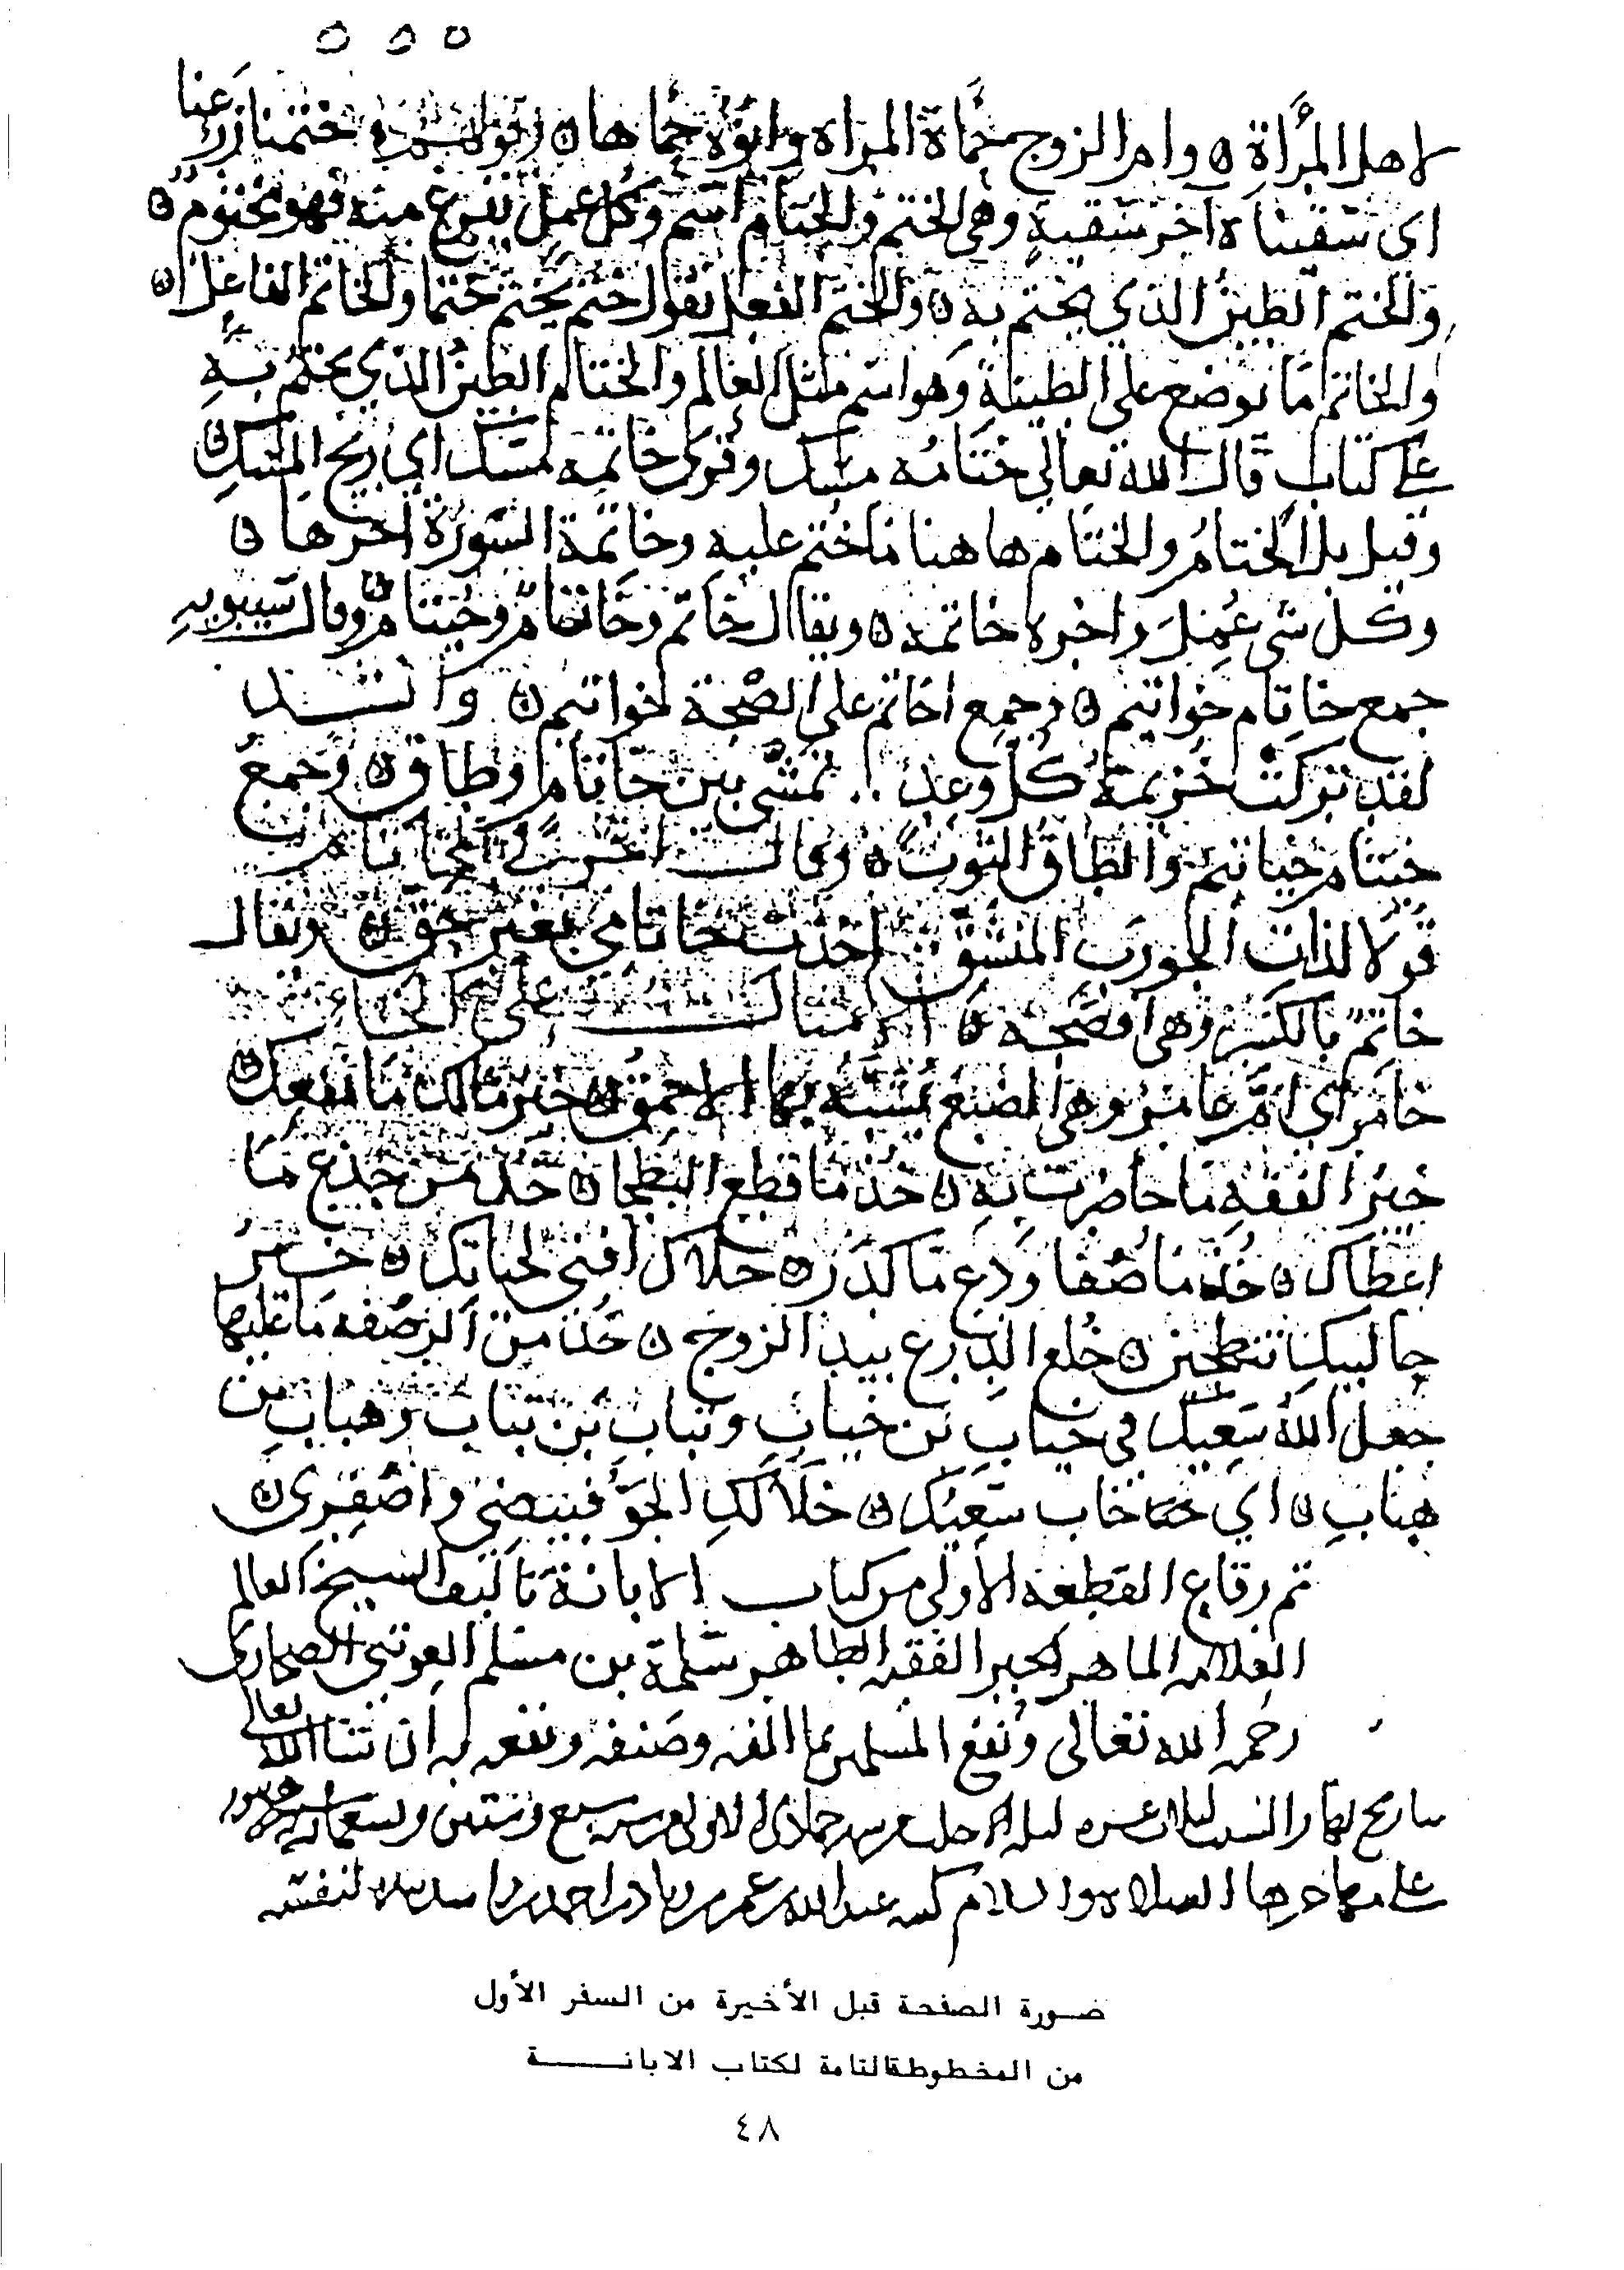 لاهل المرأة ه وام الزوج حماة المراه وابوه حماها ه وقولهم ختمنا زرعنا
اى سقيناه اخر سقية وهى الختم والختام اسم وكل عمل يفرغ منه فهو مختوم ه
والختم الطين الذي يختم به ه والختم الفعل تقول ختم يختم ختما والخاتم الفاعل ه
والخاتم ما يوضع على الطينة وهو اسم مثل العالم والختام الطين الذي يختم به
على كتاب قال الله تعالى ختامه مسك وقرى خاتمه مسك اي ريح المسك ه
وقيل بل الختام والختام هاهنا ما ختم عليه وخاتمة السورة اخرها ه
وكل شي عمل واخره خاتمه ه ويقال خاتم وخاتام وخيتام وقال سيبويه
جمع خاتام خواتيم ه وجمع خاتم على الصحة خواتم ه وانشد
لقد تركت خزيمة كل وغد ∴ تمشى بين خاتام وطاق ه وجمع
خيتام خياتيم والطاق الثوب ه وقال اخر في الخاتام
قولا لذات الجورب المنشق اخذت خاتامى بغير حق ه ويقال
خاتم بالكسر وهى فصيحه ه الامثال على الخاء
خامرى ام عامر وهى الضبع يشبه بها الاحمق ه خير مالك ما نفعك ه
خير الفقه ما حاضرت به ه خذ ما قطع البطحا ه خذ من جذع ما
اعطاك ه خذ ما صفا ودع ما كدر ه خلاك افنى لحياتك ه خير
حالبيك تنطحين ه خلع الدرع بيد الزوج ه خذ من الرضفه ما عليها
جعل الله سعيك فى خياب بن خياب وتباب بن تباب وهياب بن
هياب ه اي خاب سعيك ه خلا لك الجو فبيضى واصفرى ه
تم رقاع القطعه الاولى من كتاب الابانة تاليف الشيخ العالم
العلامه الماهر الحبر الفقيه الطاهر سلمة بن مسلم العوتبى الصحارى
رحمه الله تعالى ونفع المسلمين بما الفه وصنفه ونفعه به ان شا الله تعالى
جمادى الاولى سبع وستين وتسعمايه
على مهاجرها الصلاه والسلام كتبه عبدالله بن عمر بن زياد بن احمد لنفسه
صورة الصفحة قبل الأخيرة من السفر الأول
من المخطوطة التامة لكتاب الابانة
٤٨